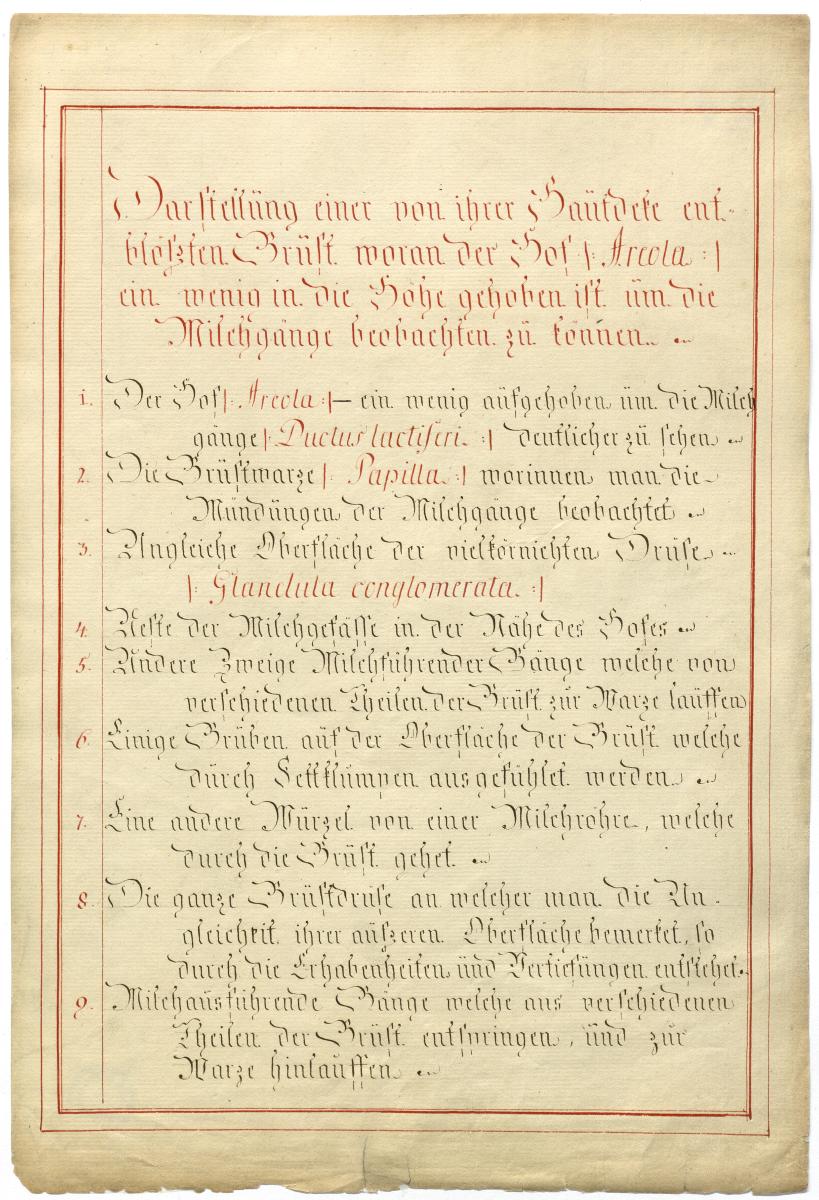 Darstellüng einer von ihrer Haütdeke ent-
blößten Brüst woran der Hof |: Areola :|
ein wenig in die Höhe gehoben ist üm die
Milchgänge beobachten zü können.
1. Der Hof |: Areola :| — ein wenig aüfgehoben üm die Milch
gänge |: Ductus lactiferi. :| deutlicher zü sehen
2. Die Brüstwarze |: Papilla :| worinnen man die
Mündüngen der Milchgänge beobachtet
3. Ungleiche Oberfläche der vielkörnichten Drüse
|: Glandula conglomerata. :|
4. Aeste der Milchgefässe in der Nähe des Hofes
5. Andere Zweige Milchführender Gänge welche von
verschiedenen Theilen der Brüst zür Warze laüffen
6. Einige Grüben aüf der Oberfläche der Brüst welche
dürch Fettklümpen ausgefühlet werden
7. Eine andere Würzel von einer Milchröhre, welche
durch die Brüst gehet.
8. Die ganze Brüstdrüse an welcher man die Un-
gleichkeit ihrer aüßeren Oberfläche bemerket, so
dürch die Erhabenheiten ünd Vertiefüngen entstehet.
9. Milchausführende Gänge welche aus verschiedenen
Theilen der Brüst entspringen, ünd zür
Warze hinlaüffen